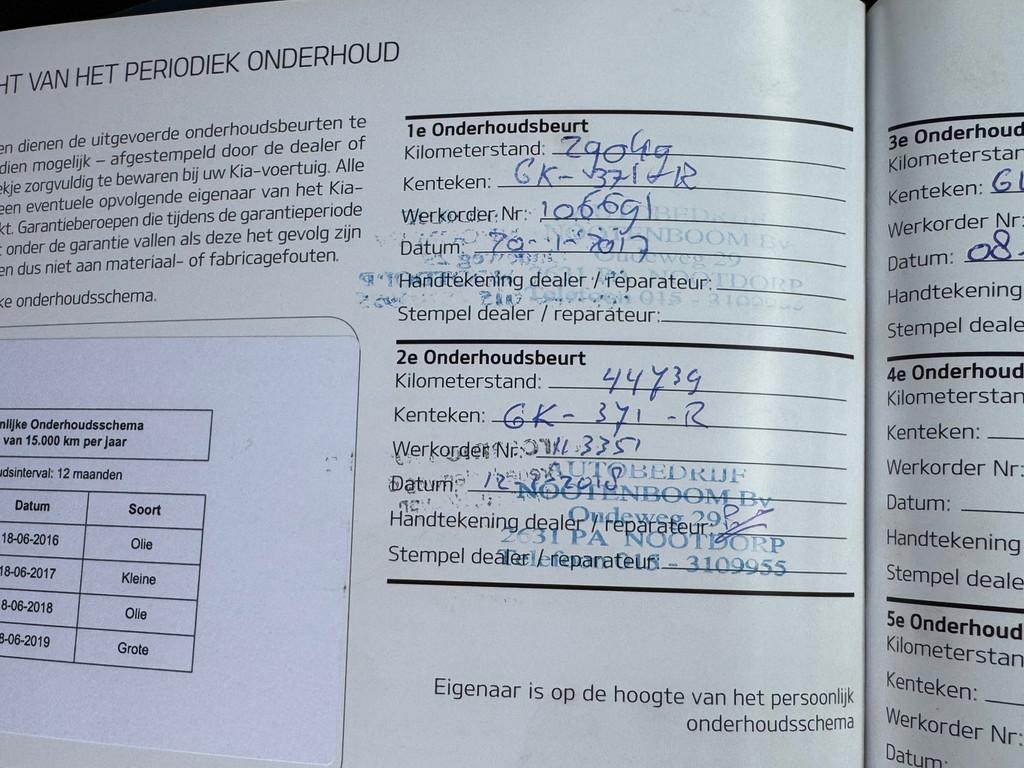 HT VAN HET PERIODIEK ONDERHOUD
en dienen de uitgevoerde onderhoudsbeurten te
dien mogelijk – afgestempeld door de dealer of
ekje zorgvuldig te bewaren bij uw Kia-voertuig. Alle
een eventuele opvolgende eigenaar van het Kia-
kt. Garantieberoepen die tijdens de garantieperiode
t onder de garantie vallen als deze het gevolg zijn
en dus niet aan materiaal- of fabricagefouten.
ke onderhoudsschema.
nlijke Onderhoudsschema
van 15.000 km per jaar
udsinterval: 12 maanden
Datum Soort
18-06-2016 Olie
18-06-2017 Kleine
8-06-2018 Olie
8-06-2019 Grote
1e Onderhoudsbeurt
Kilometerstand: 29049
Kenteken: GK-371-R
Werkorder Nr: 106691
Datum: 20-1-2017
Handtekening dealer / reparateur:
Stempel dealer / reparateur:
NOOTENBOOM Bv
Oudeweg 29
2631 PA NOOTDORP
Telefoon 015 - 3109955
2e Onderhoudsbeurt
Kilometerstand: 44739
Kenteken: GK-371-R
Werkorder Nr: 113351
Datum: 12-2-2018
Handtekening dealer / reparateur:
Stempel dealer / reparateur:
AUTOBEDRIJF
NOOTENBOOM Bv
Oudeweg 29
2631 PA NOOTDORP
Telefoon 015 - 3109955
Eigenaar is op de hoogte van het persoonlijk
onderhoudsschema
3e Onderhoud
Kilometerstan
Kenteken: G
Werkorder Nr:
Datum: 08-
Handtekening
Stempel deale
4e Onderhoud
Kilometerstan
Kenteken:
Werkorder Nr:
Datum:
Handtekening
Stempel deale
5e Onderhoud
Kilometerstan
Kenteken:
Werkorder Nr:
Datum: